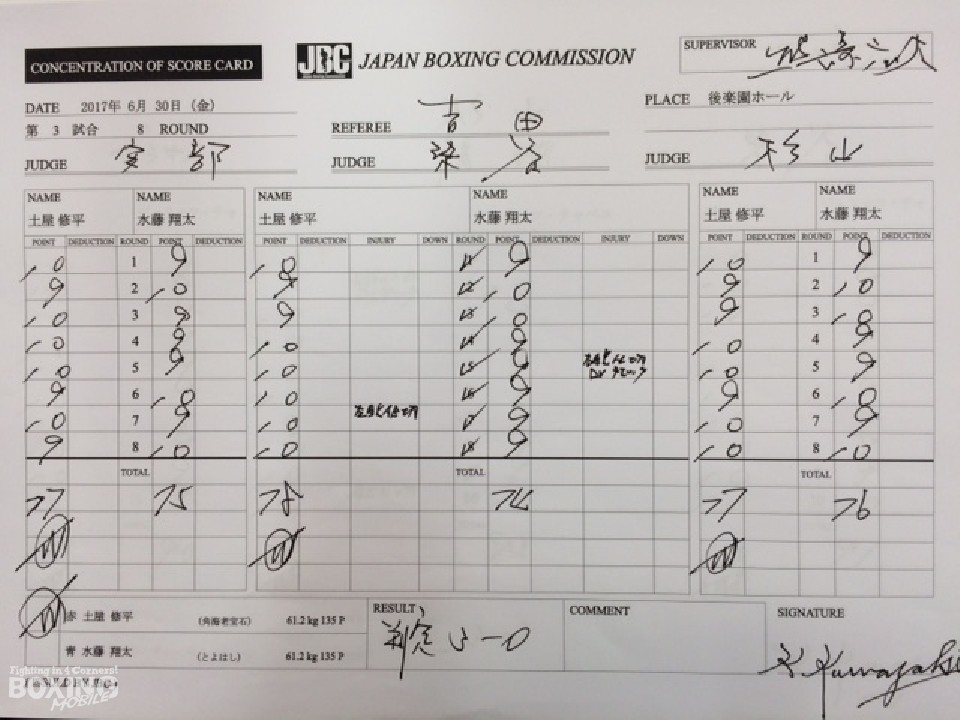 CONCENTRATION OF SCORE CARD
JBC JAPAN BOXING COMMISSION
SUPERVISOR
DATE 2017年 6月 30日 (金)
PLACE 後楽園ホール
第 3 試合 8 ROUND
REFEREE 吉田
JUDGE
JUDGE
JUDGE 杉山
NAME NAME NAME NAME NAME NAME
土屋 修平 水藤 翔太 土屋 修平 水藤 翔太 土屋 修平 水藤 翔太
POINT DEDUCTION ROUND POINT DEDUCTION POINT DEDUCTION INJURY DOWN ROUND POINT DEDUCTION INJURY DOWN POINT DEDUCTION ROUND POINT DEDUCTION
10 1 9 10 11 9 10 1 9
9 2 10 9 12 10 9 2 10
10 3 9 9 13 10 9 3 10
10 4 9 10 14 9 10 4 9
10 5 9 10 15 9 10 5 9
9 6 10 10 16 9 9 6 10
10 7 9 10 17 9 10 7 9
9 8 10 10 18 9 10 8 10
TOTAL TOTAL TOTAL
77 75 78 74 77 76
赤 土屋 修平 (角海老宝石) 61.2 kg 135 P
青 水藤 翔太 (とよはし) 61.2 kg 135 P
RESULT
判定 3-0
COMMENT
SIGNATURE
Fighting in 4 Corners!
BOXING
MOBILE